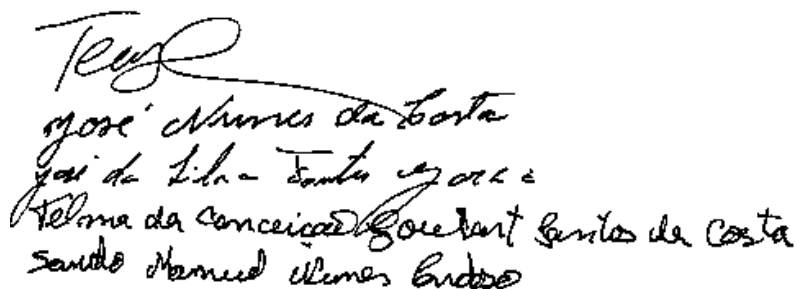 José Nunes da Costa
José da Silva
Telma da Conceição Goulart Santos da Costa
Sandro Manuel Nunes Cardoso